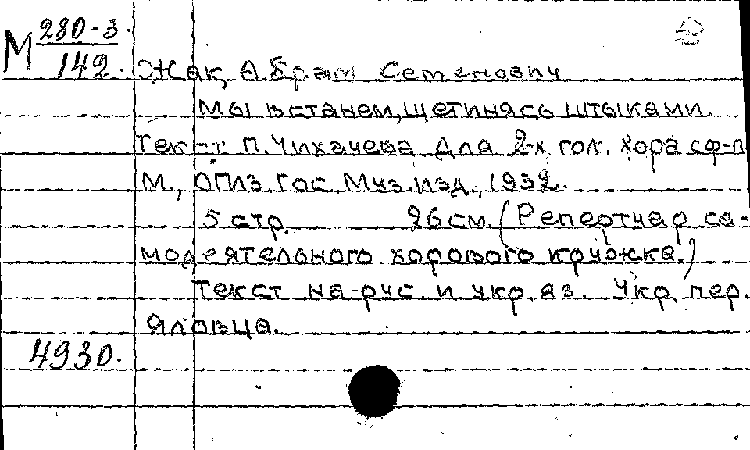 М 280-3
142. Жак, Абрам Семенович
Мы встанем, щетинясь штыками.
Текст П. Чихачева Для 2-х гол. хора с ф-п
М., ОГИЗ. Гос. Муз. изд., 1932.
5 стр. 26 см. (Репертуар са-
модеятельного хорового кружка.)
Текст на рус. и укр. яз. Укр. пер.
Яловца.
4930.